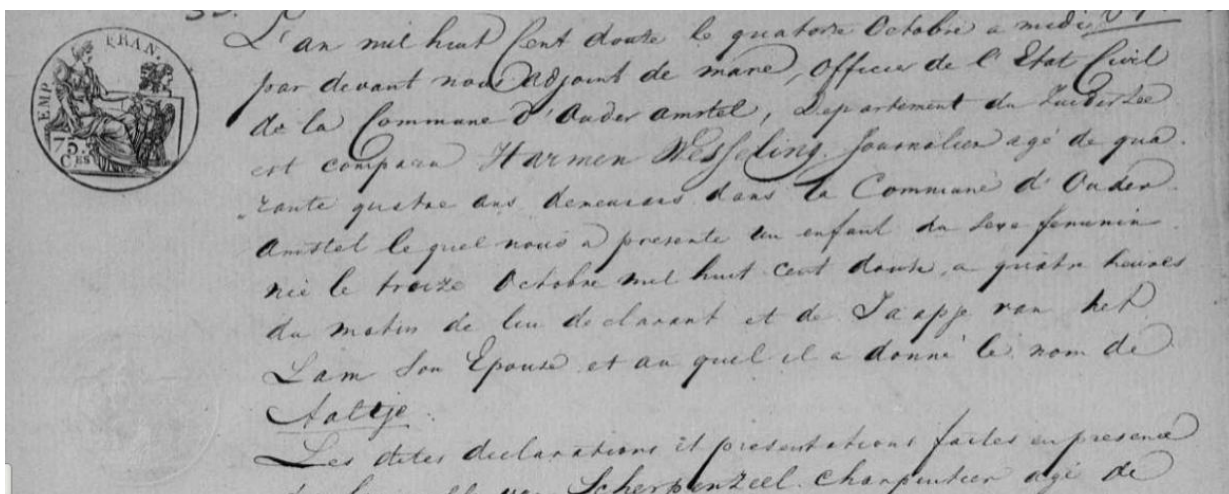 EMP. FRAN.
75.
CES
L'an mil huit Cent douze le quatorze Octobre a midi
par devant nous adjoint de maire, Officier de l'Etat Civil
de la Commune d'Ouder amstel, Departement du Zuiderzee
est comparu Harmen Wesseling. Journalier agé de qua
rante quatre ans demeurant dans la Commune d'Ouder
Amstel le quel nous a presente un enfant du sexe feminin
née le treize Octobre mil huit cent douze, a quatre heures
du matin de lui declarant et de Jaapje van het
Lam Son Epouse et au quel il a donné le nom de
Aaltje.
Les dites declarations et presentations faites en presence
Scherpenzeel Charpentier agé de